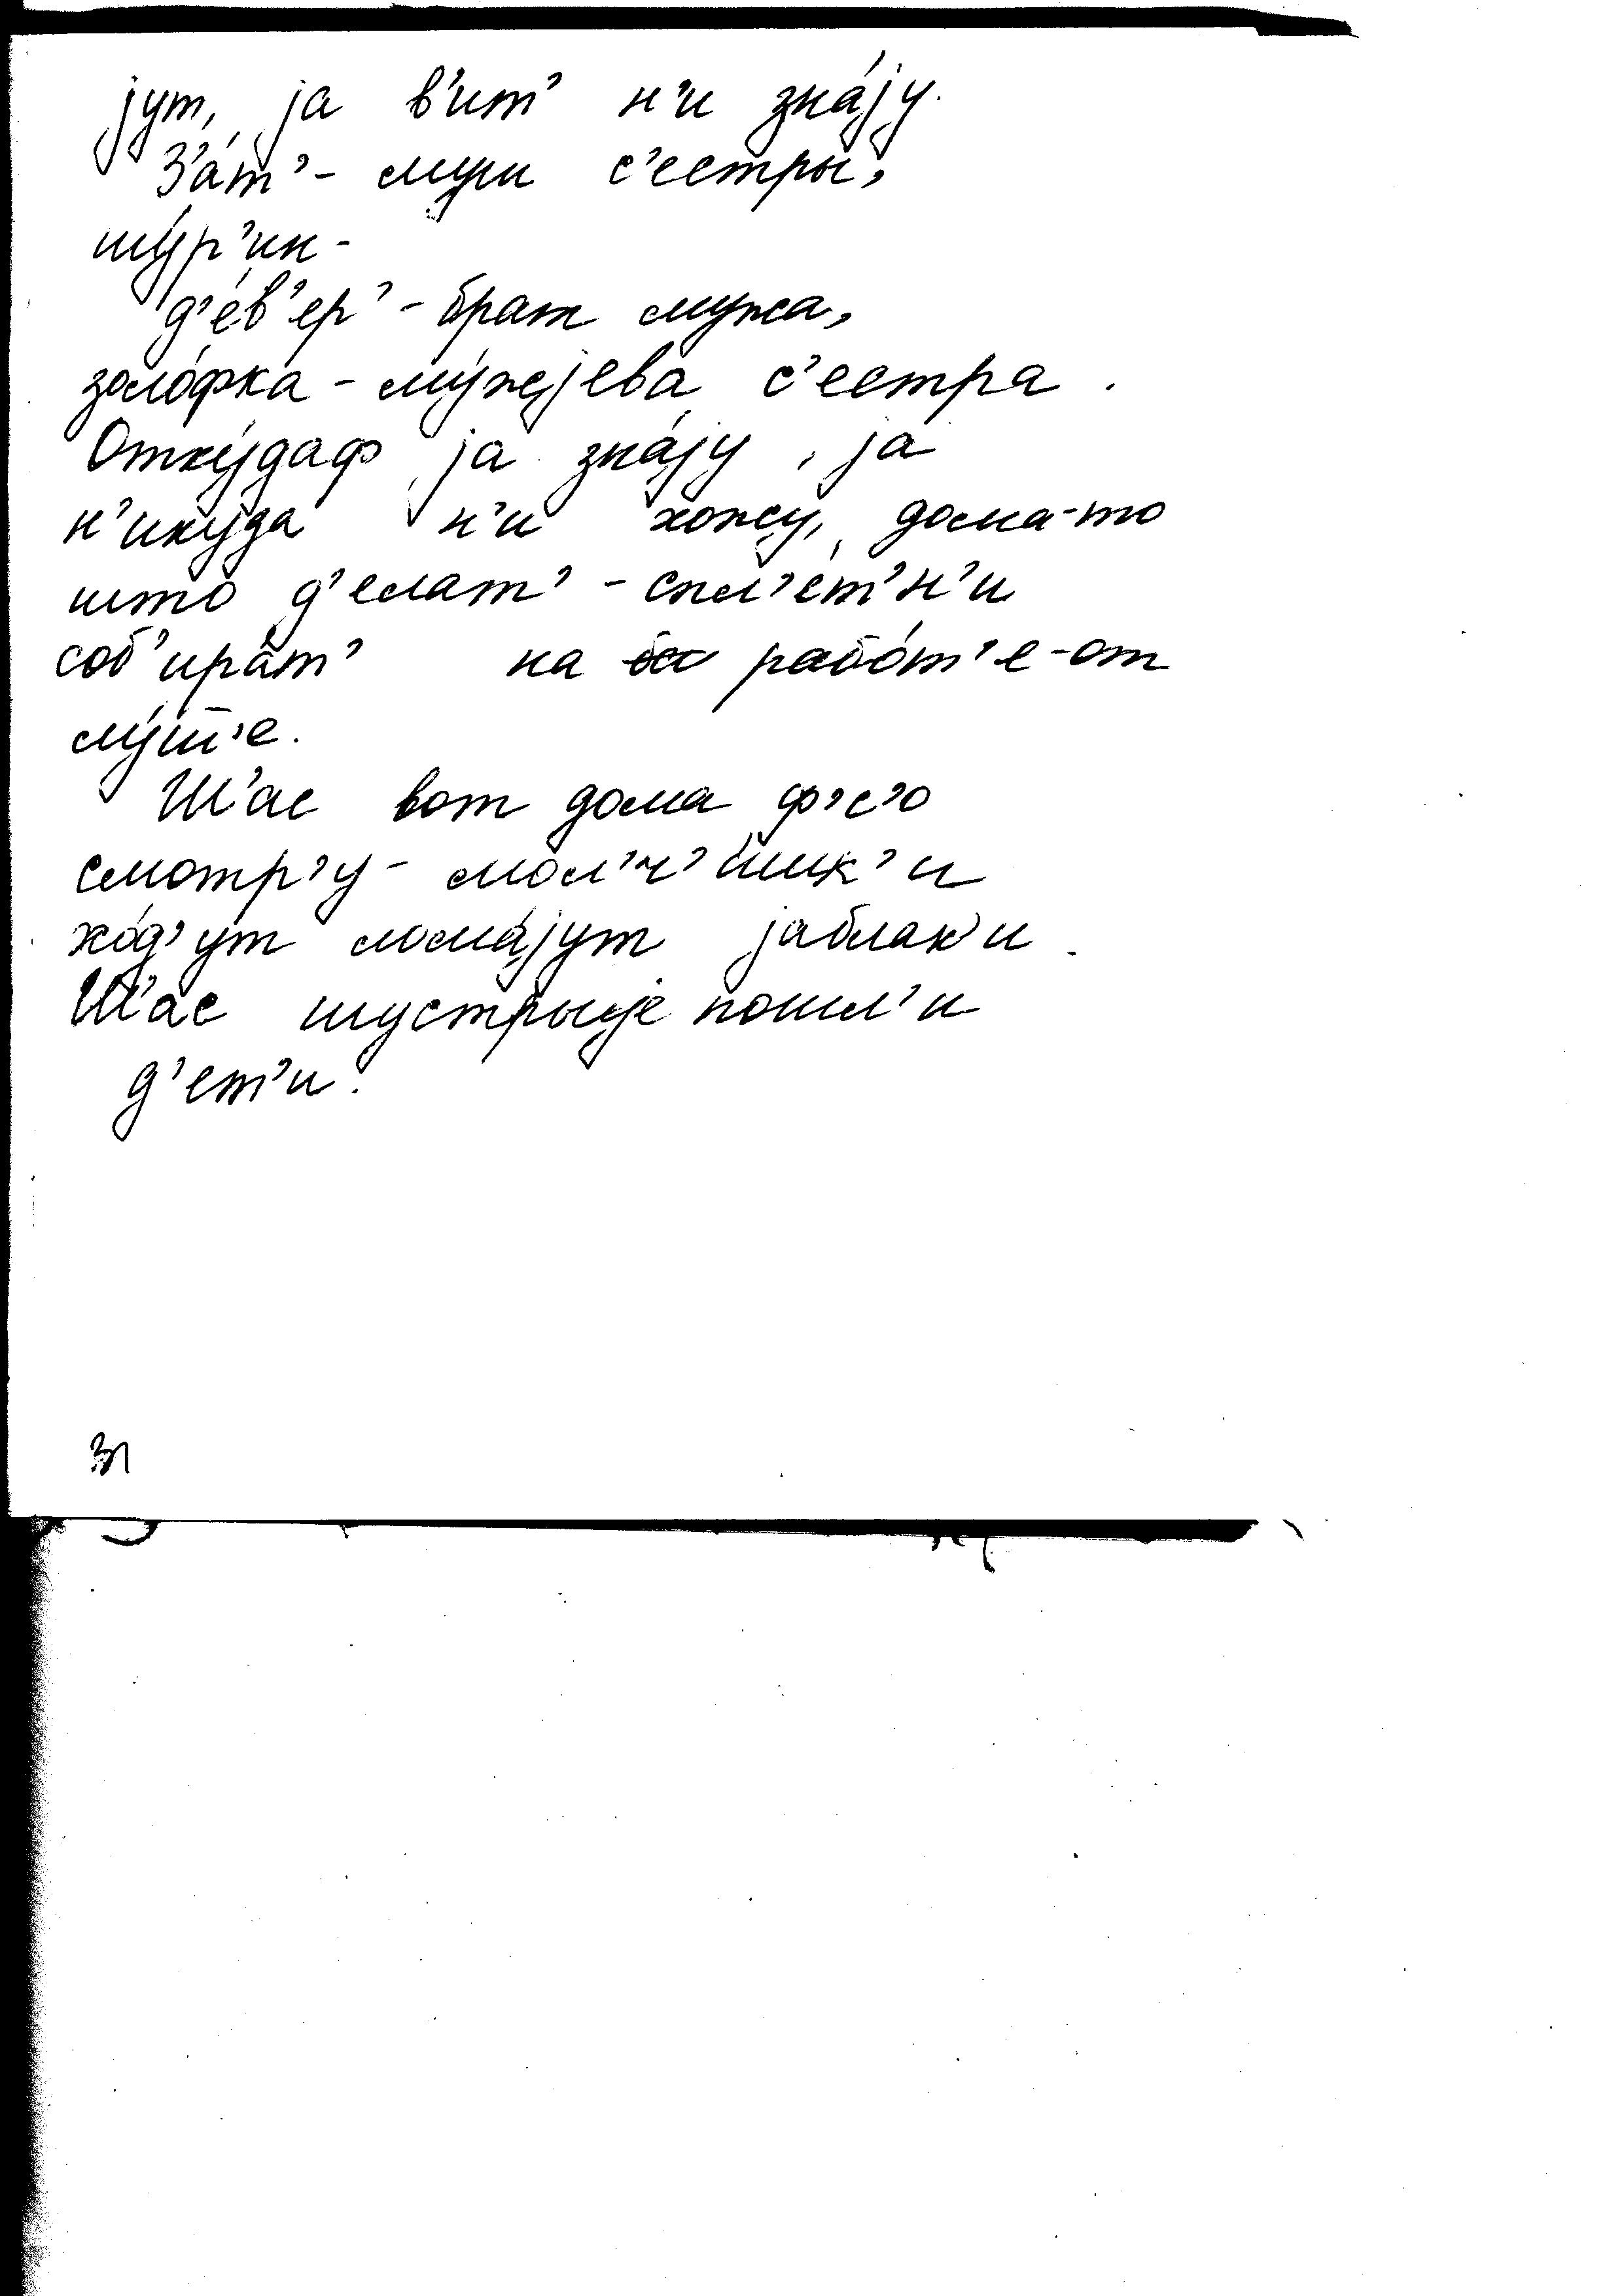 jут, jа в'ит' н'и зна́jу.
З'а́т' - муш с'естры,
шу́р'ин -
д'е́в'ер' - брат мужа,
золо́фка - му́жеjева с'естра.
Отку́даф jа зна́jу, jа
н'икуда н'и хожу, дома-то
што д'елат' - спл'е́т'н'и
соб'ира́т' на рабо́т'е-от
лу́ш'е.
Ш'ас вот дома ф'с'о
смотр'у - мол'ч'ишк'и
хо́д'ут лома́jут jаблак'и.
Ш'ас шустрыjе пошл'и
д'ет'и.
31